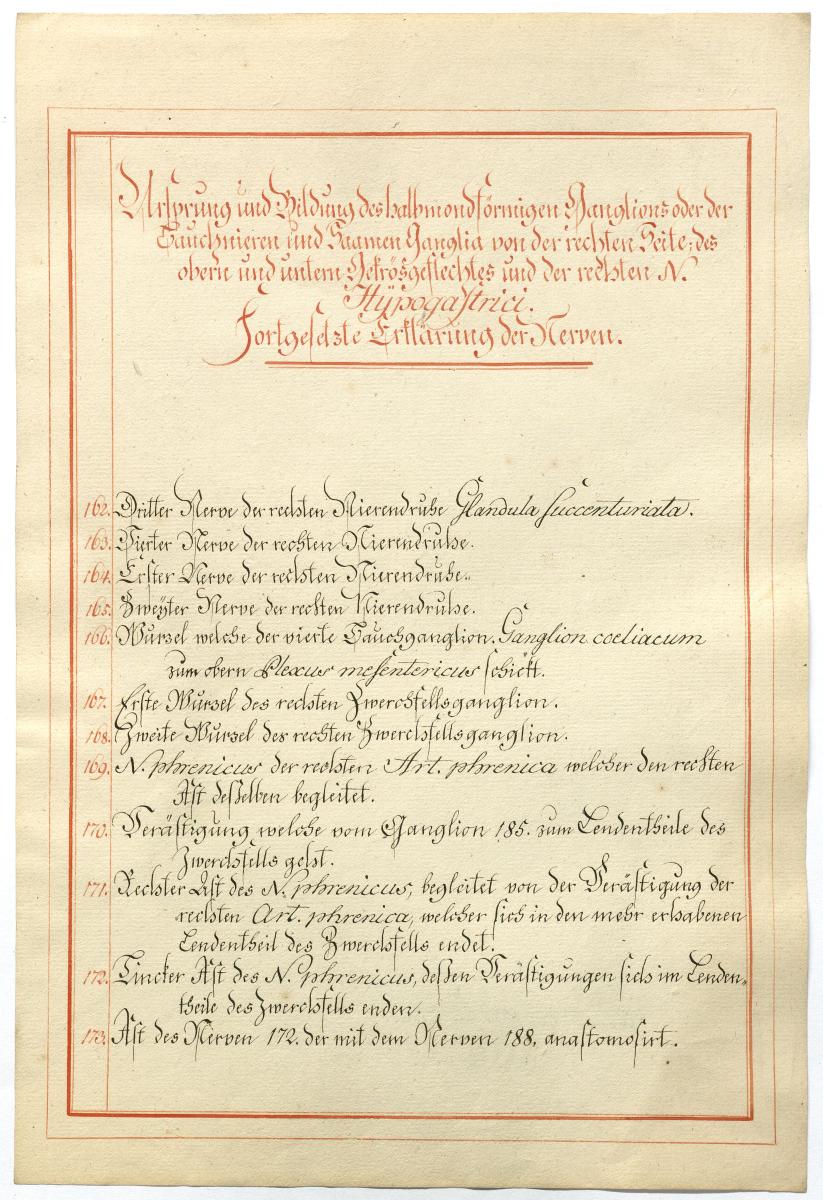 Ursprung und Bildung des halbmondförmigen Ganglions oder der
Bauchnieren und Saamen Ganglia von der rechten Seite, des
obern und untern Gekrösgeflechtes und der rechten N.
Hÿpogastrici.
Fortgesetzte Erklärung der Nerven.
162. Dritter Nerve der rechten Nierendruhse Glandula succenturiata.
163. Vierter Nerve der rechten Nierendruhse.
164. Erster Nerve der rechten Nierendruhse.
165. Zweÿter Nerve der rechten Nierendruhse.
166. Wursel welche der vierte Bauchganglion. Ganglion coeliacum
zum obern Plexus mesentericus schickt.
167. Erste Wursel des rechten Zwerchfellsganglion.
168. Zweite Wursel des rechten Zwerchfellsganglion.
169. N. phrenicus der rechten Art. phrenica welcher den rechten
Ast deßelben begleitet.
170. Verästigung welche vom Ganglion 185. zum Lendentheile des
Zwerchfells geht.
171. Rechter Ast des N. phrenicus, begleitet von der Verästigung der
rechten Art. phrenica, welcher sich in den mehr erhabenen
Lendentheil des Zwerchfells endet.
172. Lincker Ast des N. phrenicus, deßen Verästigungen sich im Lenden-
theile des Zwerchfells enden.
173. Ast des Nerven 172. der mit dem Nerven 188. anastomosirt.